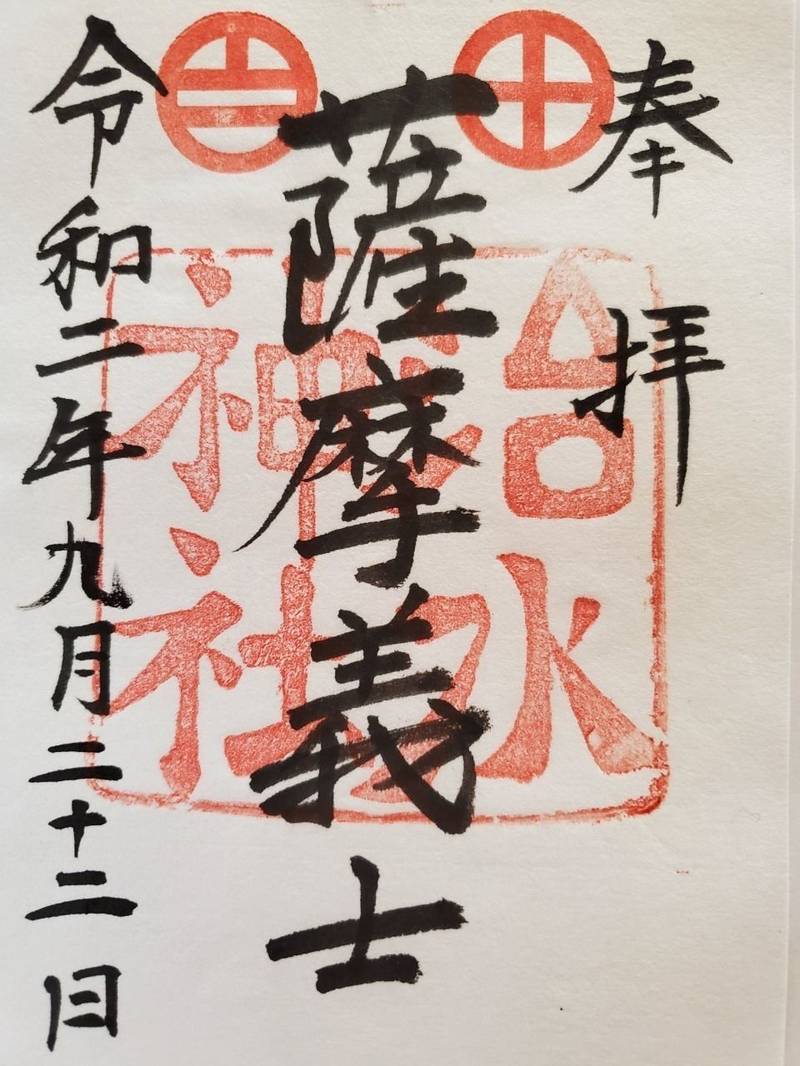 奉拝
薩摩義士
治水
神社
令和二年九月二十二日